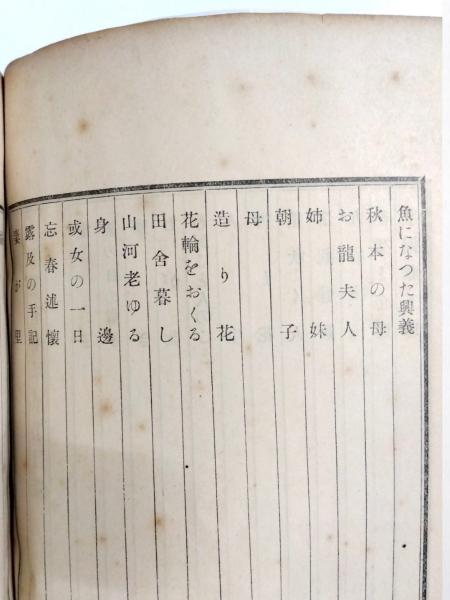 魚になつた興義
秋本の母
お龍夫人
姉妹
朝子
母
造り花
花輪をおくる
田舍暮し
山河老ゆる
身邊
或女の一日
忘春述懷
露及の手記
妻が里